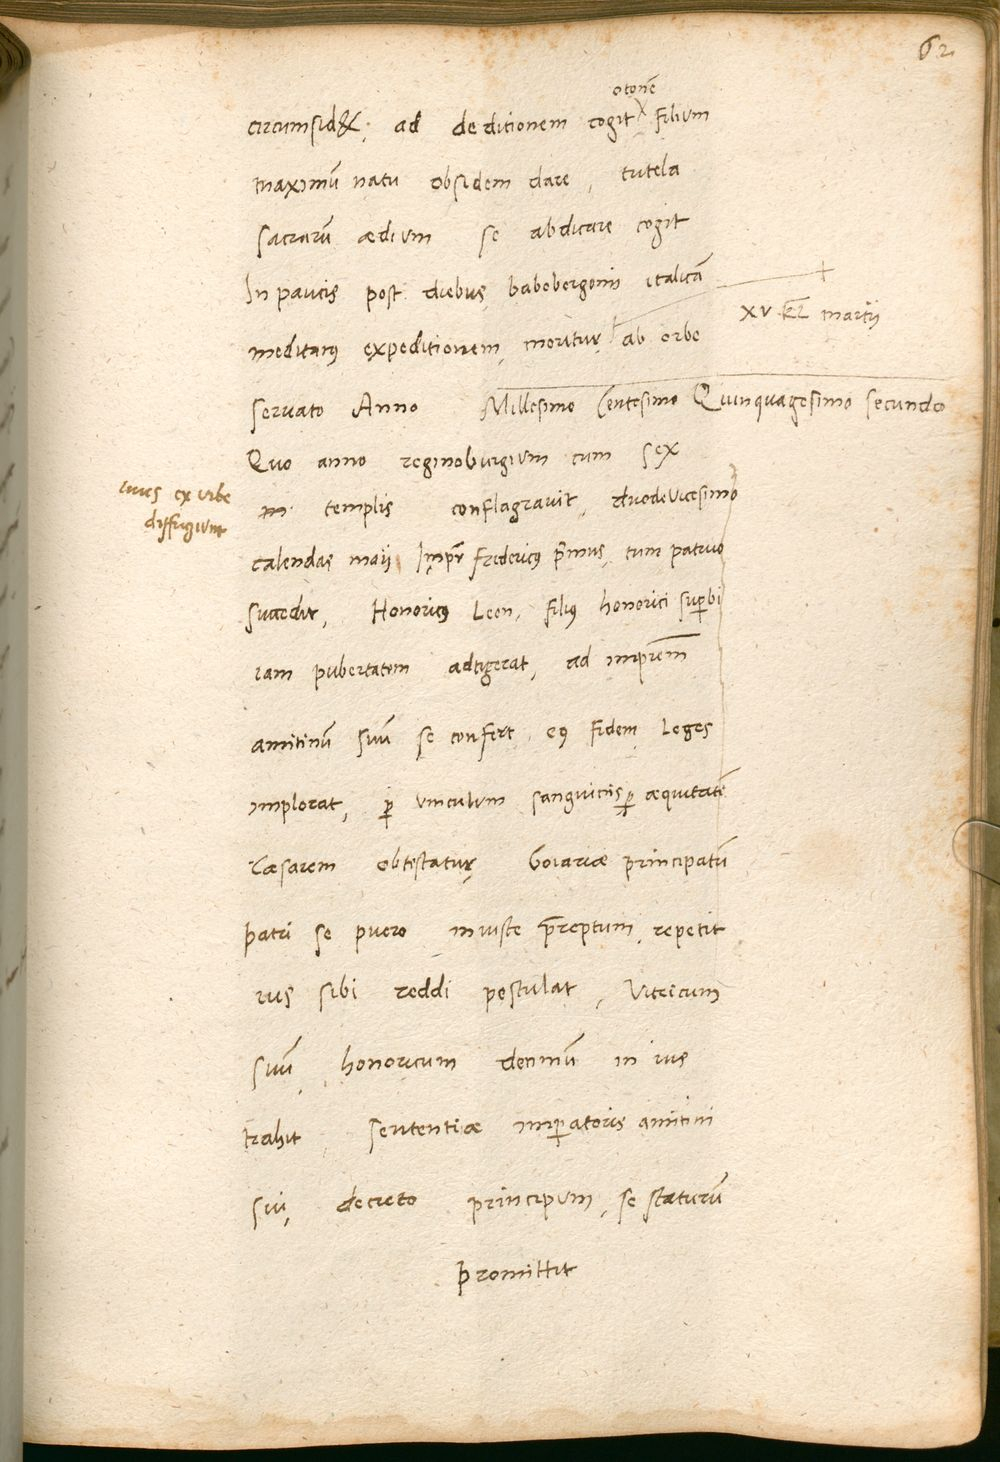 62
otonē
circumsid&, ad deditionem cogit filium
maximū natu obsidem dare, tutela
sacrarū ædium se abdicare cogit
In paucis post diebus babebergomi italicā
xv kł martij
meditans expeditionem, moritur ab orbe
servato Anno Millesimo Centesimo Quinquagesimo secundo
Quo anno reginoburgium cum sex
cives ex urbe
diffugiunt
m templis conflagravit, duodevicesimo
calendas maij Impr̄ fredericus p̄mus, cum patruo
suaedir, Honoricus Leon, filius honorici supbi
iam pubertatem adtigerat, ad imprem̄
amitinū suū se confert, eius fidem leges
implorat, p vinculum sanguinis p æquitatē
Cæsarem obtestatur, boiariæ principatū
patri se puero iniuste p̄reptum, repetit
ius sibi reddi postulat, Vitricum
suū honoricum decimū in ius
trahit sententiæ imperatoris amitini
sui, decreto principum, se staturū
promittit